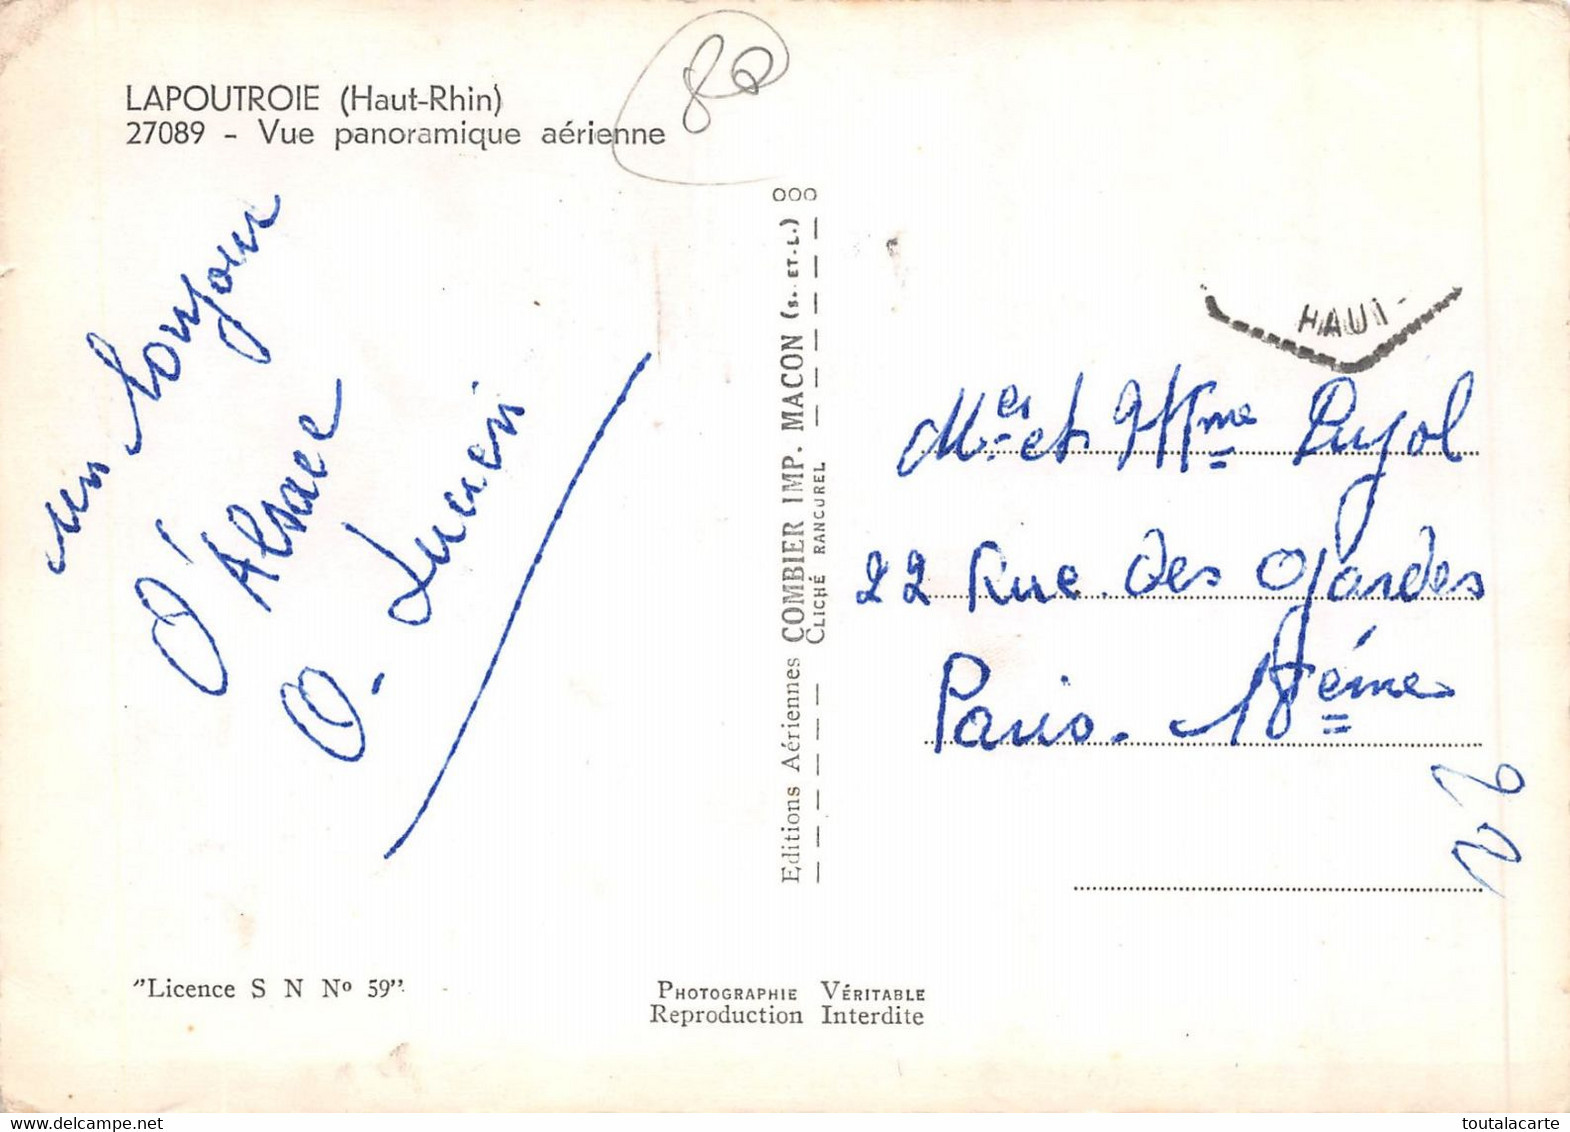 LAPOUTROIE (Haut-Rhin)
27089 - Vue panoramique aérienne
80
un bonjour
d'Alsace
O. Lucien
ooo
Editions Aériennes COMBIER IMP. MACON (S.-ET-L.)
CLICHÉ RANCUREL
HAUT-
Mer et Mme Pujol
22 Rue des Gardes
Paris. 18ème
"Licence S N Nº 59"
PHOTOGRAPHIE VÉRITABLE
Reproduction Interdite
toutalacarte